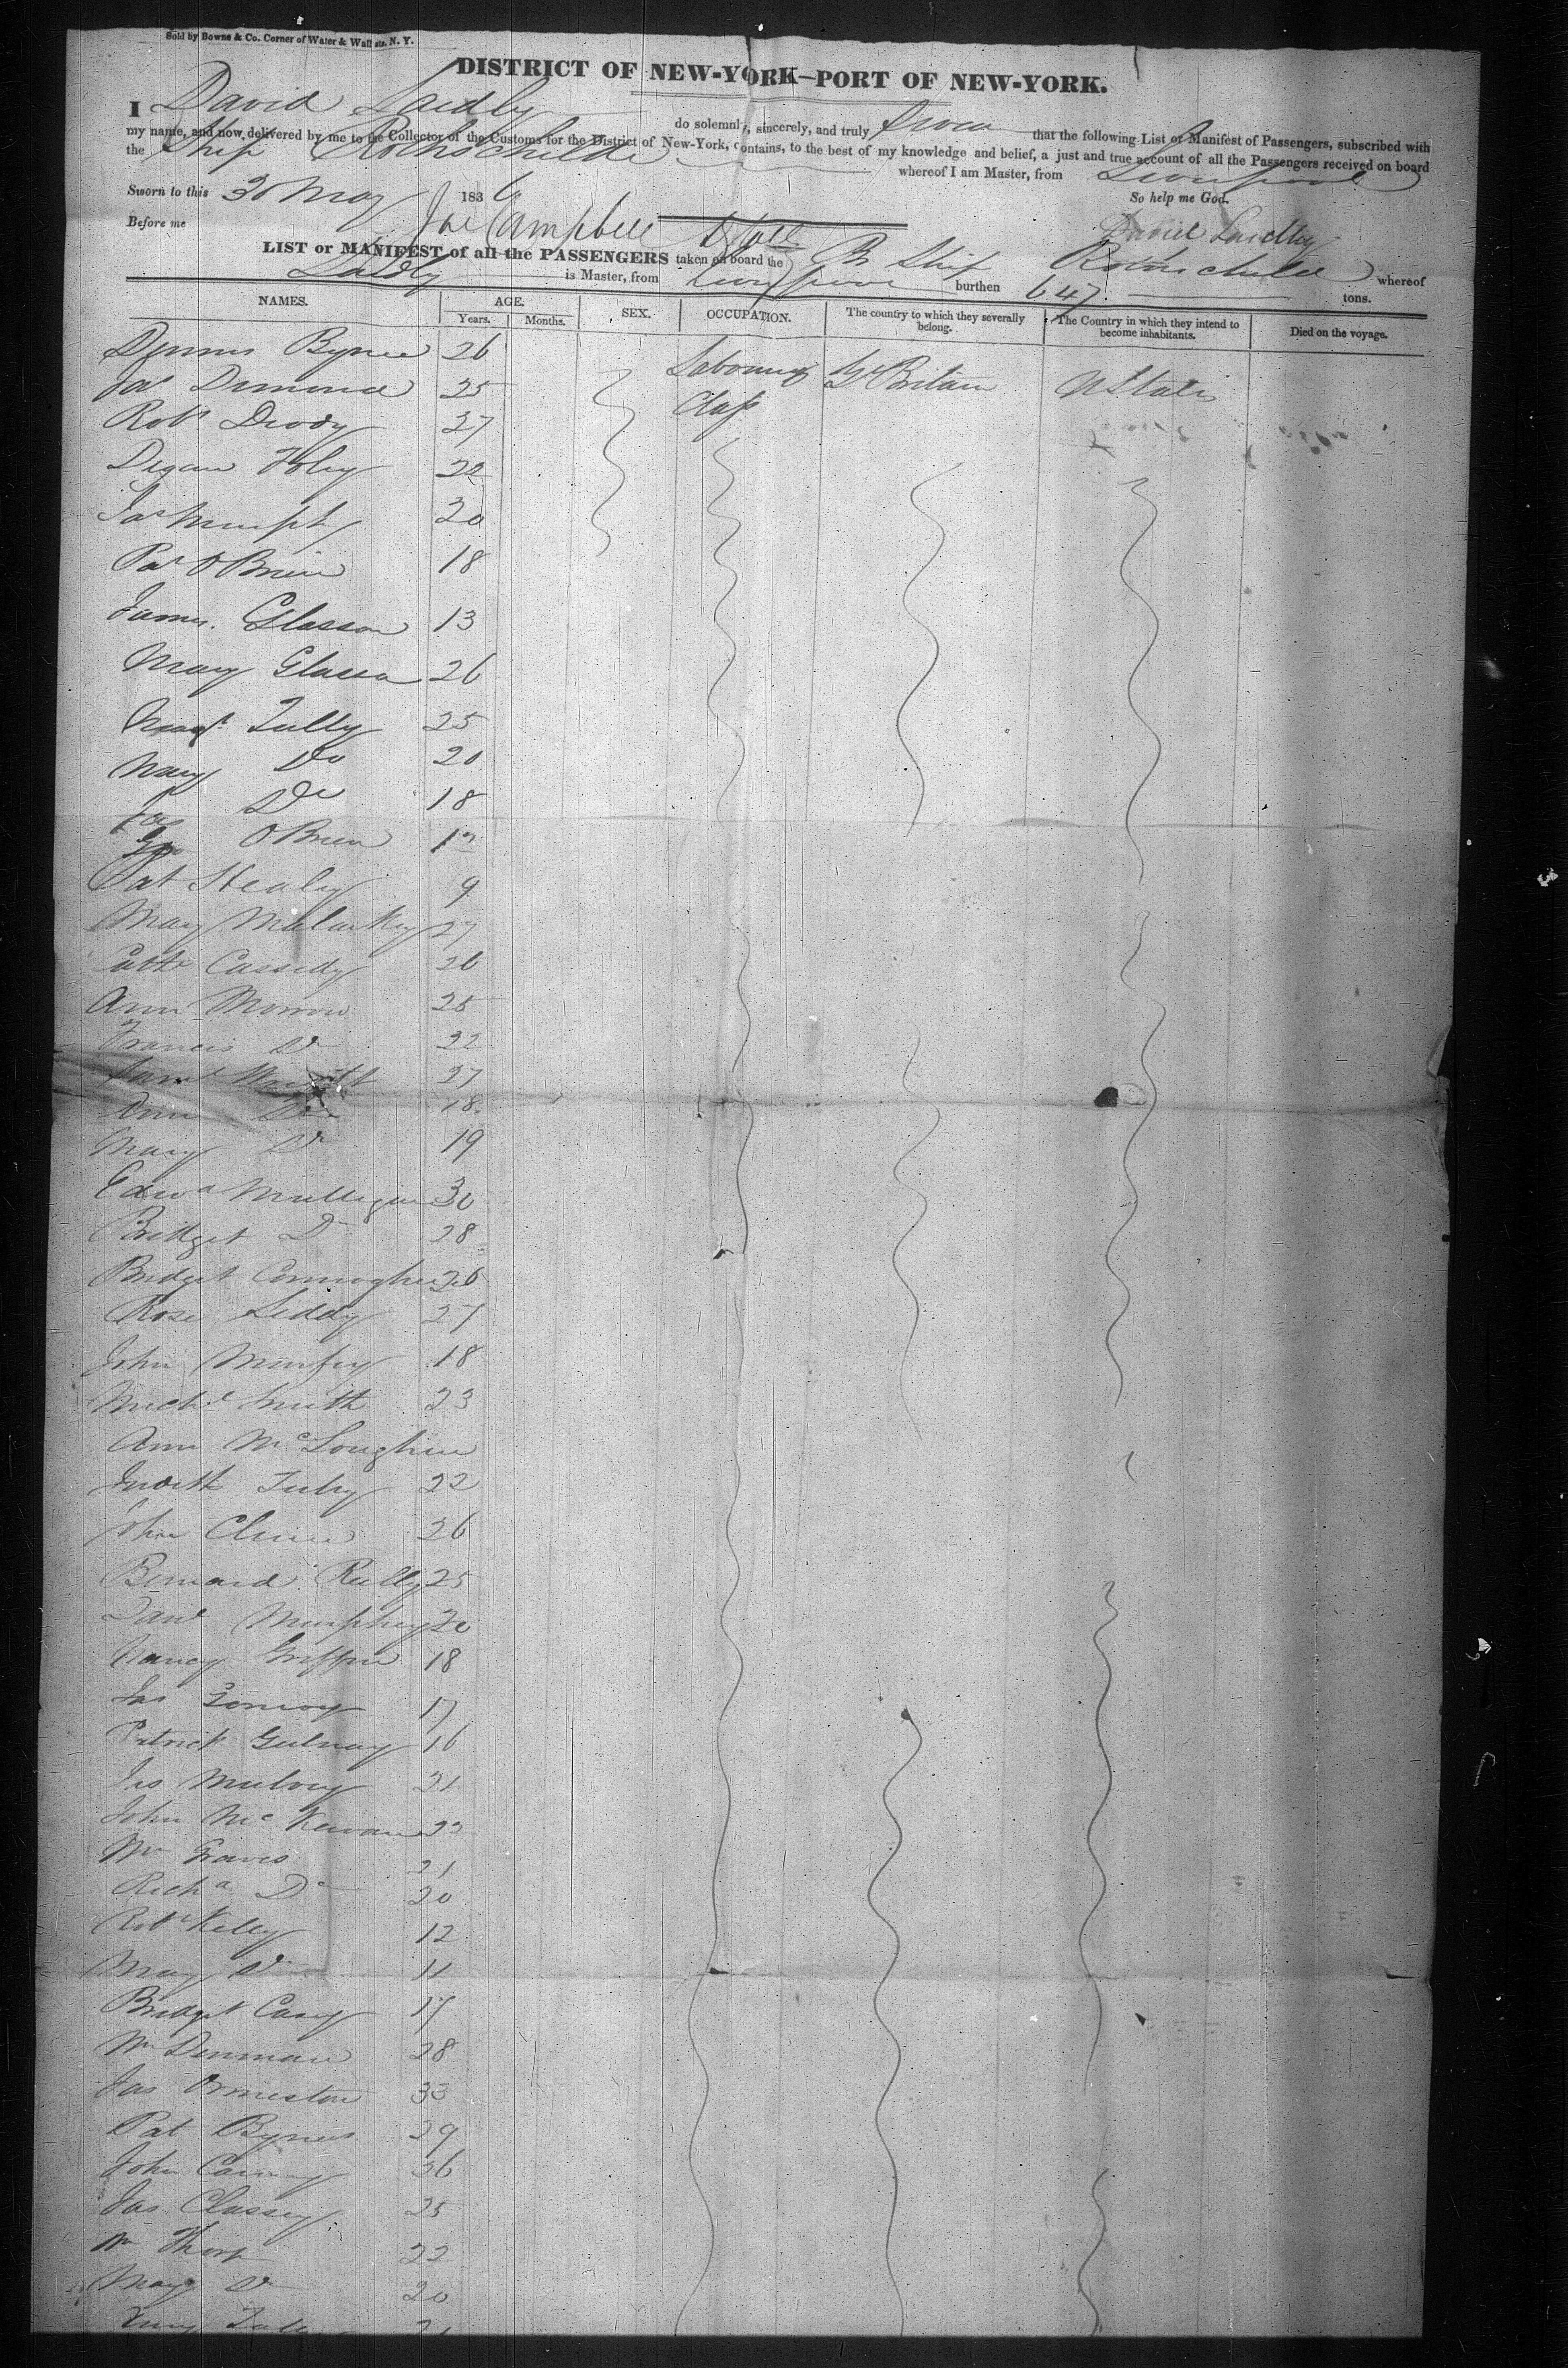 Sold by Bowne & Co. Corner of Water & Wall sts. N. Y.
DISTRICT OF NEW-YORK—PORT OF NEW-YORK.
I David Laidly do solemnly, sincerely, and truly swear that the following List or Manifest of Passengers, subscribed with
my name, and now delivered by me to the Collector of the Customs for the District of New-York, contains, to the best of my knowledge and belief, a just and true account of all the Passengers received on board
the Ship Rothschilde whereof I am Master, from Liverpool
Sworn to this 30 May 1836 So help me God.
Before me Campbell David Laidly
LIST or MANIFEST of all the PASSENGERS taken on board the Br Ship Rothschild whereof
Laidly is Master, from Liverpool burthen 647 tons.
NAMES. AGE. SEX. OCCUPATION. The country to which they severally belong. The Country in which they intend to become inhabitants. Died on the voyage.
Years. Months.
Dennis Byrne 26 Labouring Gt Britain U States
Jas Dimond 25 Class
Robt 27
Foley 22
Jas Murphy 20
Pat O Brien 18
James Glasson 13
Mary Glasson 26
Tully 25
Mary Do 20
Jas Do 18
O Brien 12
Pat Healy 9
Mary Malarkey 27
Cathe Cassedy 26
Ann Morrow 25
Francis Do 22
27
Ann Do 18
Mary Do 19
Edwd Mulligan 30
Bridget Do 28
Bridget 26
Rose Leddy 27
John Murfey 18
Michl Smith 23
Ann McLoughlin
Judith 22
John 26
Bernard Reilly 25
Murphey 20
Nancy Griffin 18
Jas 17
Patrick 16
Jas Mulvey 21
John Mc 22
Wm Graves 21
Richd Do 20
Robt Kelly 12
Mary Do 11
Bridget Casey 17
Wm Denman 28
Jas Ormeston 33
Pat Byrnes 29
John 36
Jas Classey 25
Wm Thorp 22
Mary Do 20